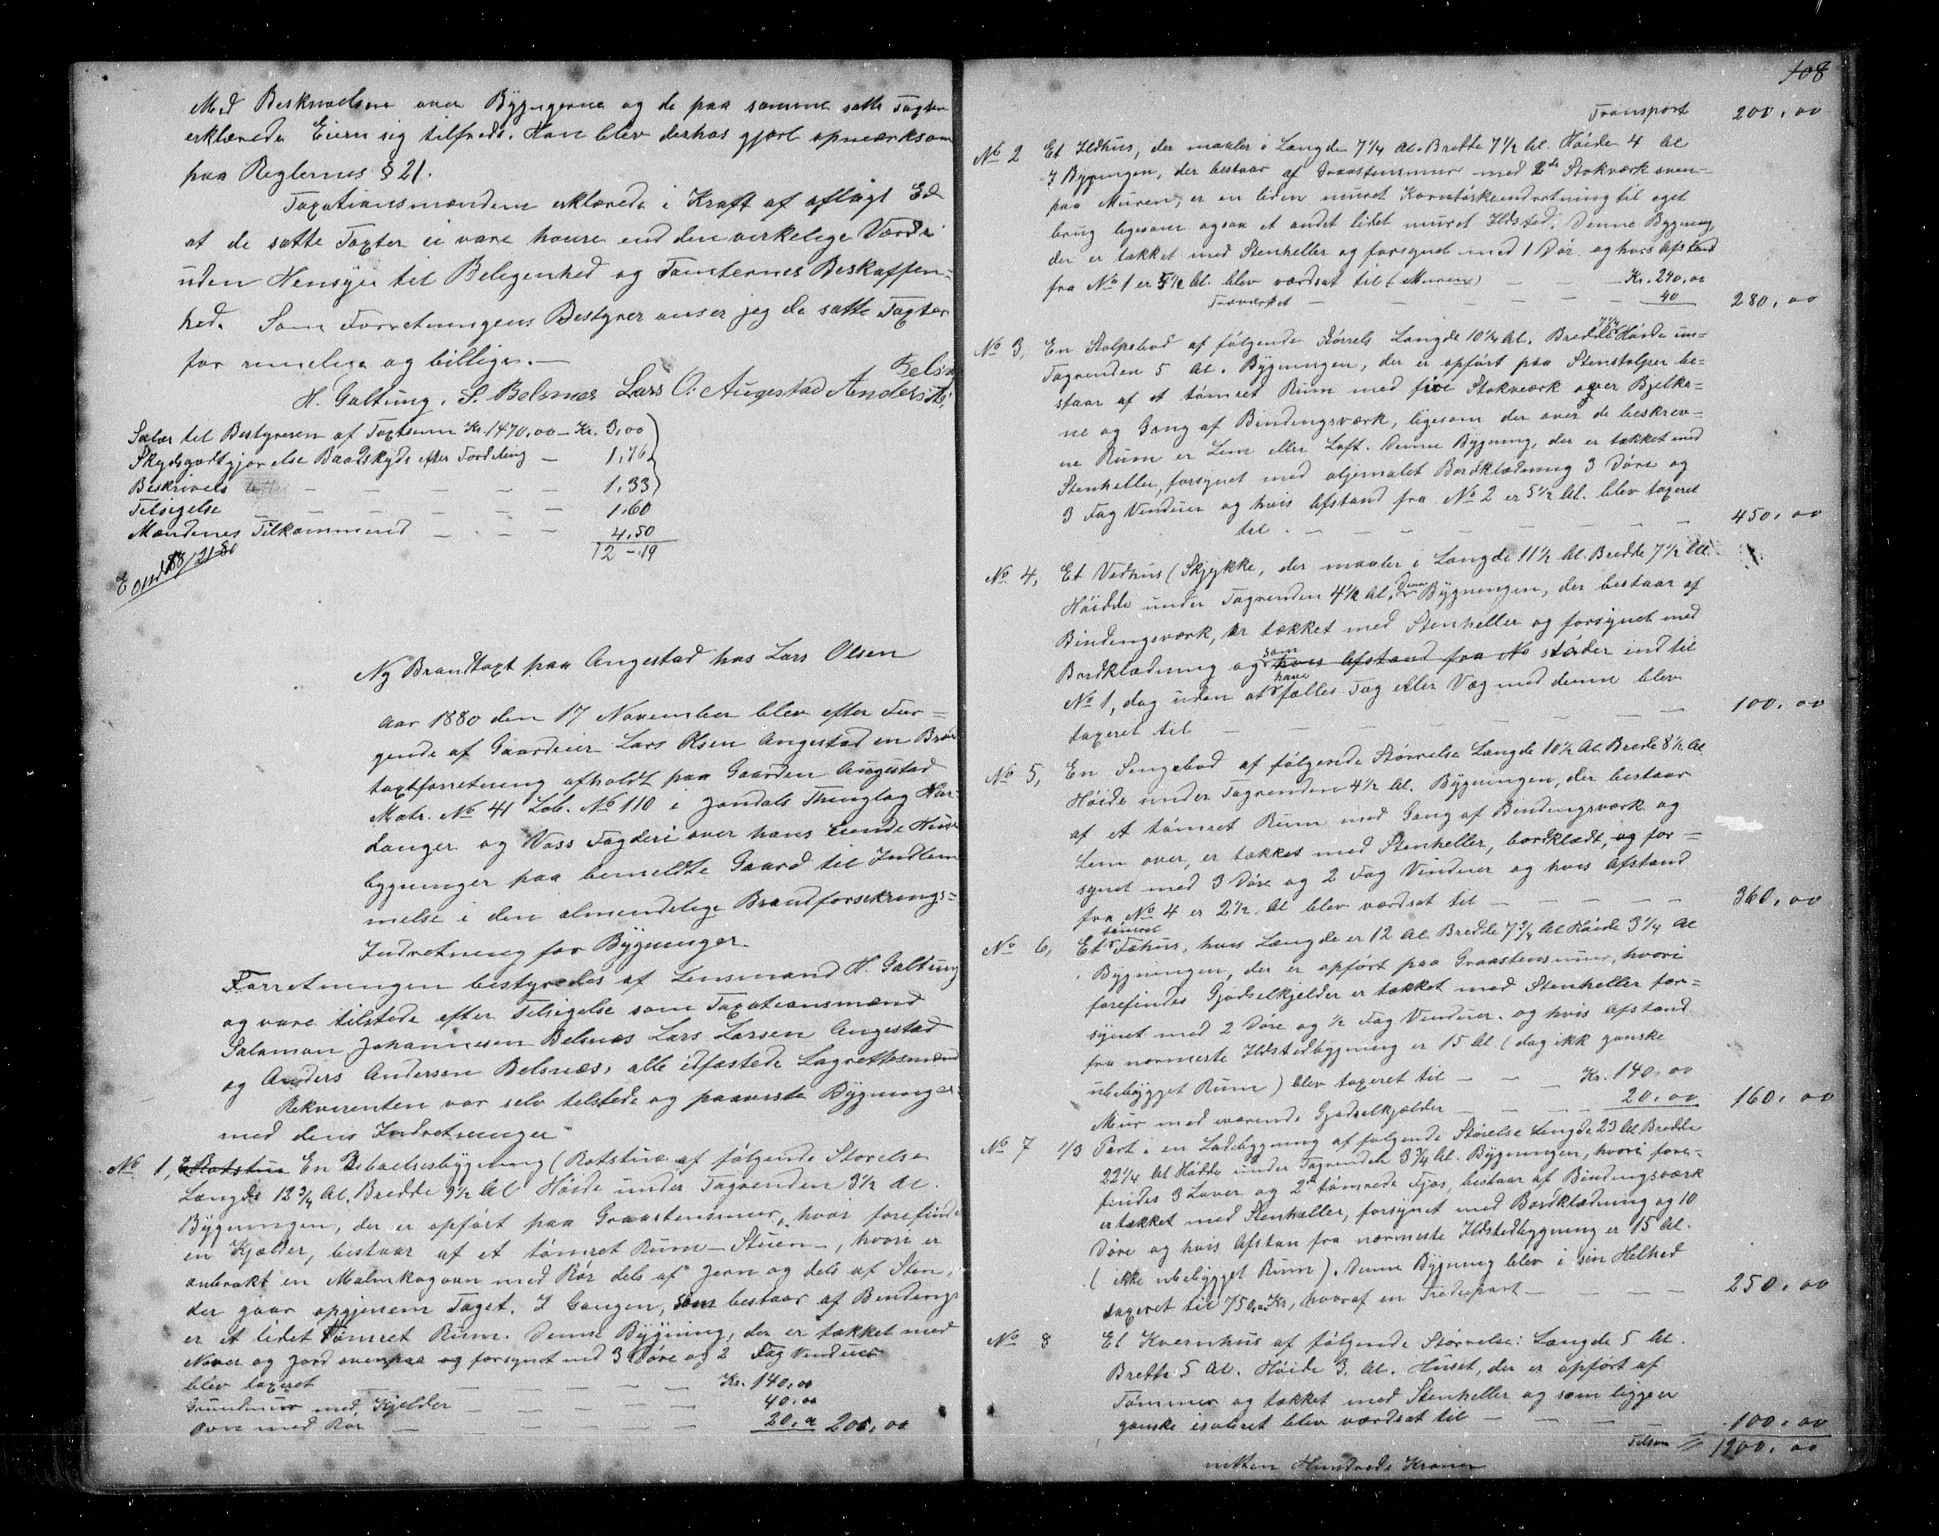 Med Beskrivelsen over Bygngerne og de paa samme satte Taxter
erklærede Eieren sig tilfreds. Han blev derhos gjort opmærksom
paa Reglernes § 21.
Taxationsmændene erklærede i Kraft af aflagt Ed
at de satte Taxter ei vare høiere end den virkelige Værdi
uden Hensyn til Beleigenhed og Tomternes Beskaffen-
hed. Som Forretningens Bestyrer anser jeg de satte Taxter
for rimelige og billige. —
H. Galtung, S. Belsnæs Lars O. Augestad Anders A. Belsn
Salær til Bestyreren af Taxtsum Kr. 1470,00 – Kr. 3,00
Skydsgodtgjørelse Baadskyds efter Fordeling – 1,76
Beskrivels – – – – – 1,33
Tilsigelse – – – – – 1,60
Mændenes Tilkommend – – – 4,50
12 – 19
Ny Brandtaxt paa Augestad hos Lars Olsen
Aar 1880 den 17 November blev efter For-
gende af Gaardeier Lars Olsen Augestad en Bran
taxtforretning afholdt paa Gaarden Augestad
Matr. No 41 Løb. No 110 i Jondals Thinglag Har-
danger og Voss Fogderi over hans eiende Huse
bygninger paa bemeldte Gaard til Indlem
melse i den almindelige Brandforsikrings-
Indretning for Bygninger.
Forretningen bestyredes af Lensmand H. Galtung
og vare tilstede efter Tilsigelse som Taxationsmænd
Salamon Johannesen Belsnæs Lars Larsen Augestad
og Anders Andersen Belsnæs, alle edfæstede Lagrettesmænd
Rekvirenten var selv tilstede og paaviste Bygninger
med dens Indretninger
No 1, E Rotstue En Beboelsesbygning (Rotstue af følgende Størelse
Længde 12 3/4 Al. Bredde 9 1/2 Al Høide under Tagrenden 3 1/2 Al.
Bygningen, der er opført paa Graastensmur, hvor forefinde
en Kjælder, bestaar af et tømret Rum – Stuen –, hvori er
anbrakt en Malmkogovn med Rør dels af Jern og dels af Sten,
der gaar opgjenem Taget. I Gangen, som bestaar af Bindings
er et lidet tømret Rum. Denne Bygning, der er tækket med
Næver og Jord ovenpaa og forsynet med 3 Døre og 2 Fag Vinduer
blev taxeret – – – – – – Kr. 140,00
Grundmur med Kjelder – – – – – 40,00
Ovn med Rør – – – – – 20,00 200,00
108
Transport 200,00
No 2 Et Ildhus, der maaler i Længde 7 1/4 Al. Bredde 7 1/2 Al. Høide 4 Al
I Bygningen, der bestaar af Graastensmur med 2de Stokværk oven-
paa Muren, er en liden muret Korntørkeindretning til eget
brug ligesaa ogsaa et andet lidet muret Ildsted. Denne Bygning,
der er tækket med Stenheller og forsynet med 1 Dør og hvis Afstand
fra No 1 er 5 1/2 Al. blev værdsat til (Muren) – – Kr. 240,00
Træværket – – – – – 40 280,00
No 3, En Stolpebod af følgende Størrels Længde 10 1/2 Al. Bredde 7 1/4 Høide un-
Tagrenden 5 Al. Bygningen, der er opført paa Stenstolper be-
staar af et tømret Rum med fire Stokværk over Bjelke-
ne og Gang af Bindingsværk, ligesom der over de beskrev-
ne Rum er Lem eller Loft. Denne Bygning, der er tækket med
Stenheller, forsynet med oljemalet Bordklædning 3 Døre og
3 Fag Vinduer og hvis Afstand fra No 2 er 5 1/2 Al. blev taxeret
til – – – – – – – – 450,00
No 4, Et Vedhus (Skjykke, der maaler i Længde 11 1/2 Al. Bredde 7 1/2 Al.
Høidde under Tagrenden 4 1/2 Al. Denne Bygningen, der bestaar af
Bindingsværk, er tækket med Stenheller og forsynet med
Bordklædning og som hvis Afstand fra No støder ind til
No 1, dog uden at have fælles Tag eller Væg med denne blev
taxeret til – – – – – – – 100,00
No 5, En Sengebod af følgende Størrelse Længde 10 1/2 Al Brede 8 1/2 Al
Høide under Tagrenden 4 1/2 Al. Bygningen, der bestaar
af et tømret Rum med Gang af Bindingsværk og
Lem over, er tækket med Stenheller, bordklædt, og for-
synet med 3 Døre og 2 Fag Vinduer og hvis Afstand
fra No 4 er 2 1/2 Al blev værdsat til – – – – 360,00
No 6, Et tømret Fæhus, hvis Længde er 12 Al Bredde 7 3/4 Al Høide 3 1/4 Al
Bygningen, der er opført paa Graastensmur, hvori
forefindes Gjødselkjelder er tækket med Stenheller for-
synet med 2 Døre og 1/2 Fag Vinduer. og hvis Afstand
fra nærmeste Ildstedbygning er 15 Al. (dog ikk ganske
ubebygget Rum) blev taxeret til – – – Kr. 140,00
Mur med værende Gjødselkjelder – – – 20,00 160,00
No 7 1/3 Part i en Ladebygning af følgende Størelse Længde 23 Al Bredde
22 1/4 Al Høide under Tagrenden 3 3/4 Al. Bygningen, hvori fore-
findes 3 Laver og 2de tømrede Fjøs, bestaar af Bindingsværk
er tækket med Stenheller, forsynet med Bordklædning og 10
Døre og hvis Afstan fra nærmeste Ildstedbygning er 15 Al.
(ikke ubebygget Rum). Denne Bygning blev i sin Helhed
taxeret til 750,00 Kr, hvoraf en Trediepart – – – – 250,00
No 8 Et Kvernhus af følgende Størrelse: Længde 5 Al.
Bredde 5 Al. Høide 3. Al. Huset, der er opført af
Tømmer og tækket med Stenheller og som ligger
ganske isoleret blev værdsat til – – – – 100,00
Tilsam 1900,00
nitten Hundrede Kroner